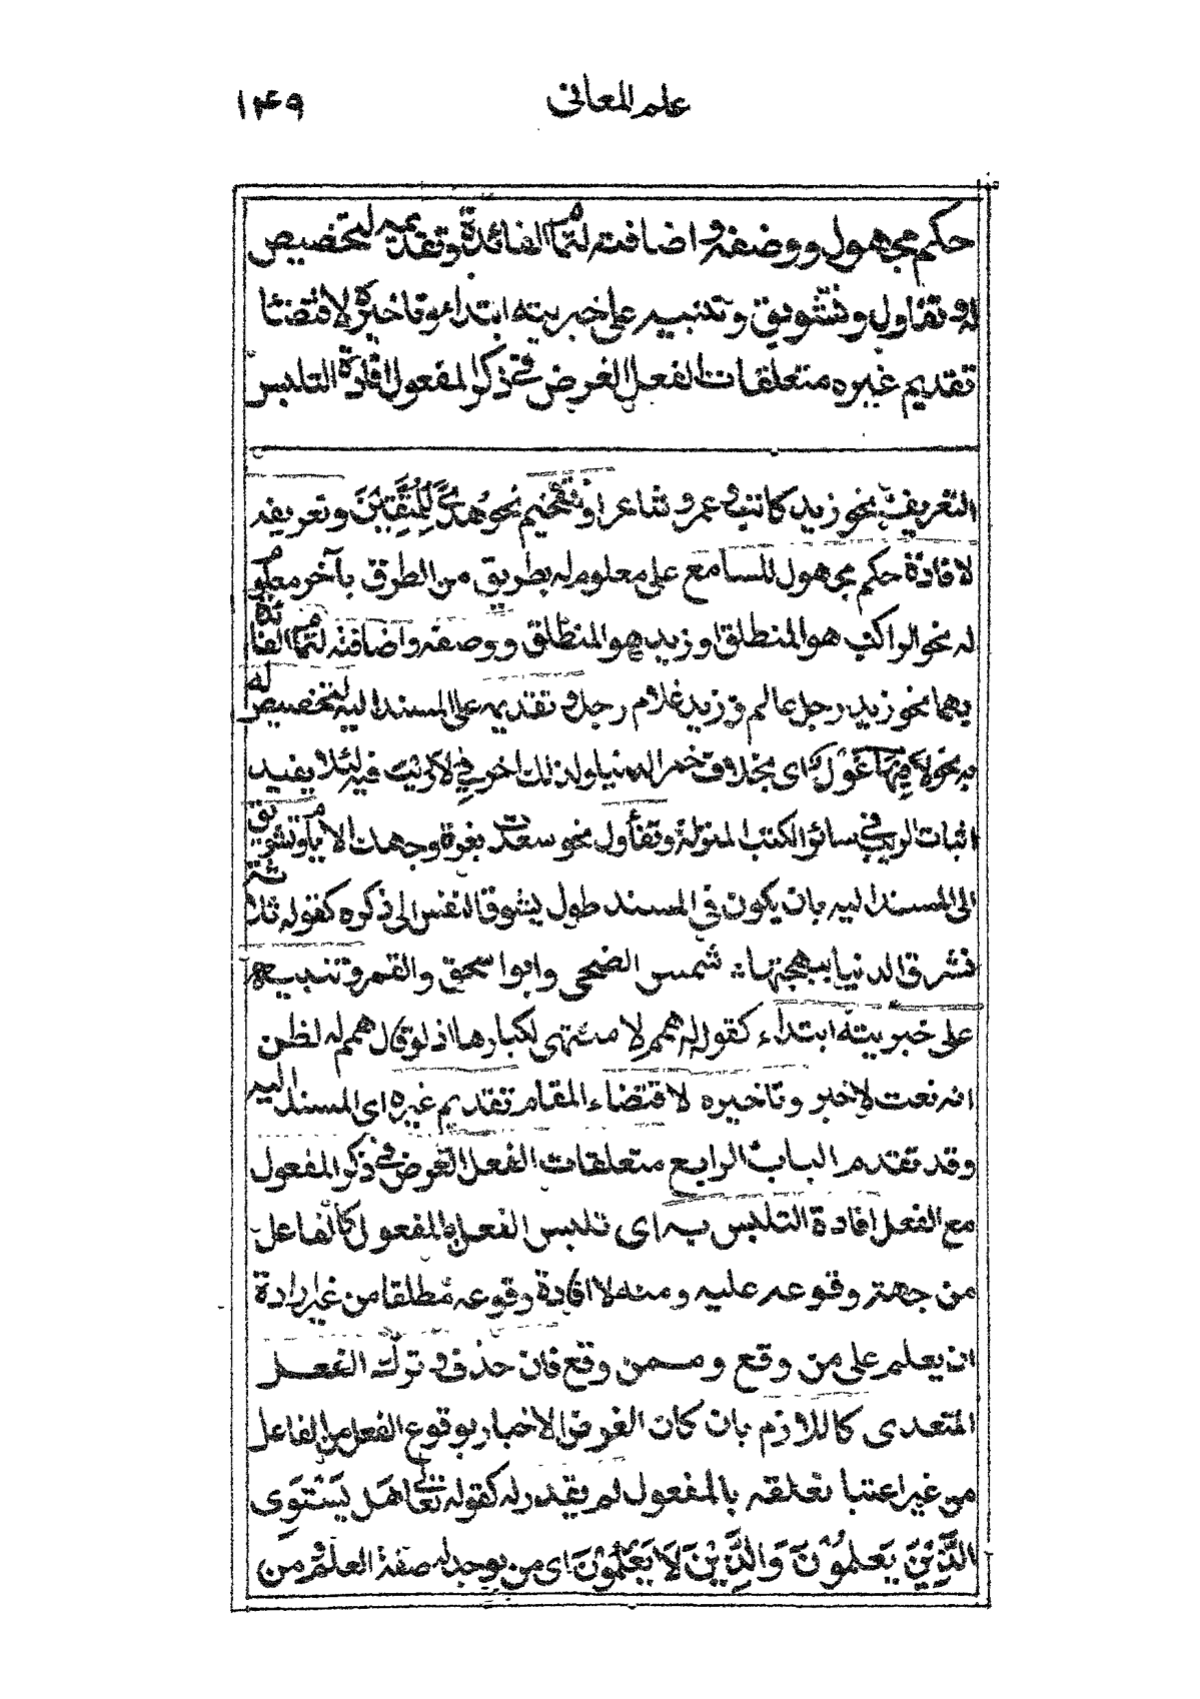 علم المعانى
١٤٩
حكم مجهول ووصفه واضافته لتمام الفائدة وتقديمه لتخصيص
له وتفاول وتشويق وتنبيه على خبريته ابتداء وتاخيره لاقتضا
تقديم غيره متعلقات الفعل الغرض فى ذكر المفعول افادة التلبس
التعريف نحو زيد كاتب وعمرو شاعر او تفخيم نحو هُدًى لِلْمُتَّقِيْنَ وتعريفه
لافادة حكم مجهول للسامع على معلوم له بطريق من الطرق بآخر معلوم
له نحو الراكب هو المنطلق او زيد هو المنطلق ووصفه واضافته لتمام الفائدة
بهما نحو زيد رجل عالم و زيد غلام رجل و تقديمه على المسند اليه لتخصيص له
به نحو لَا فِيْهَا غَوْلٌ اى بخلاف خمر الدنيا ولذلك اخر فى لَا رَيْبَ فيه لئلا يفيد
اثبات الريب فى سائر الكتب المنزلة وتفأول نحو سعدت بغرة وجهك الايام وتشويق
الى المسند اليه بان يكون فى المسند طول يشوق النفس الى ذكره كقوله ثلثة
تشرق الدنيا ببهجتها ؞ شمس الضحى وابو اسحق والقمر وتنبيه
على خبريته ابتداء كقوله له همم لا منتهى لكبارها اذ لو قال همم له لظن
انه نعت لا خبر وتاخيره لاقتضاء المقام تقديم غيره اى المسند اليه
وقد تقدم الباب الرابع متعلقات الفعل الغرض فى ذكر المفعول
مع الفعل افادة التلبس به اى تلبس الفعل بالمفعول كالفاعل
من جهة وقوعه عليه ومنه لا افادة وقوعه مطلقا من غير ارادة
ان يعلم على من وقع وممن وقع فان حذف و ترك الفعل
المتعدى كاللازم بان كان الغرض الاخبار بوقوع الفعل من الفاعل
من غير اعتبا تعلقه بالمفعول لم يقدر له كقوله تعالى هَل يَسْتَوِى
الَّذِيْنَ يَعْلَمُوْنَ وَالَّذِيْنَ لَا يَعْلَمُوْنَ اى من يوجد له صفة العلم ومن